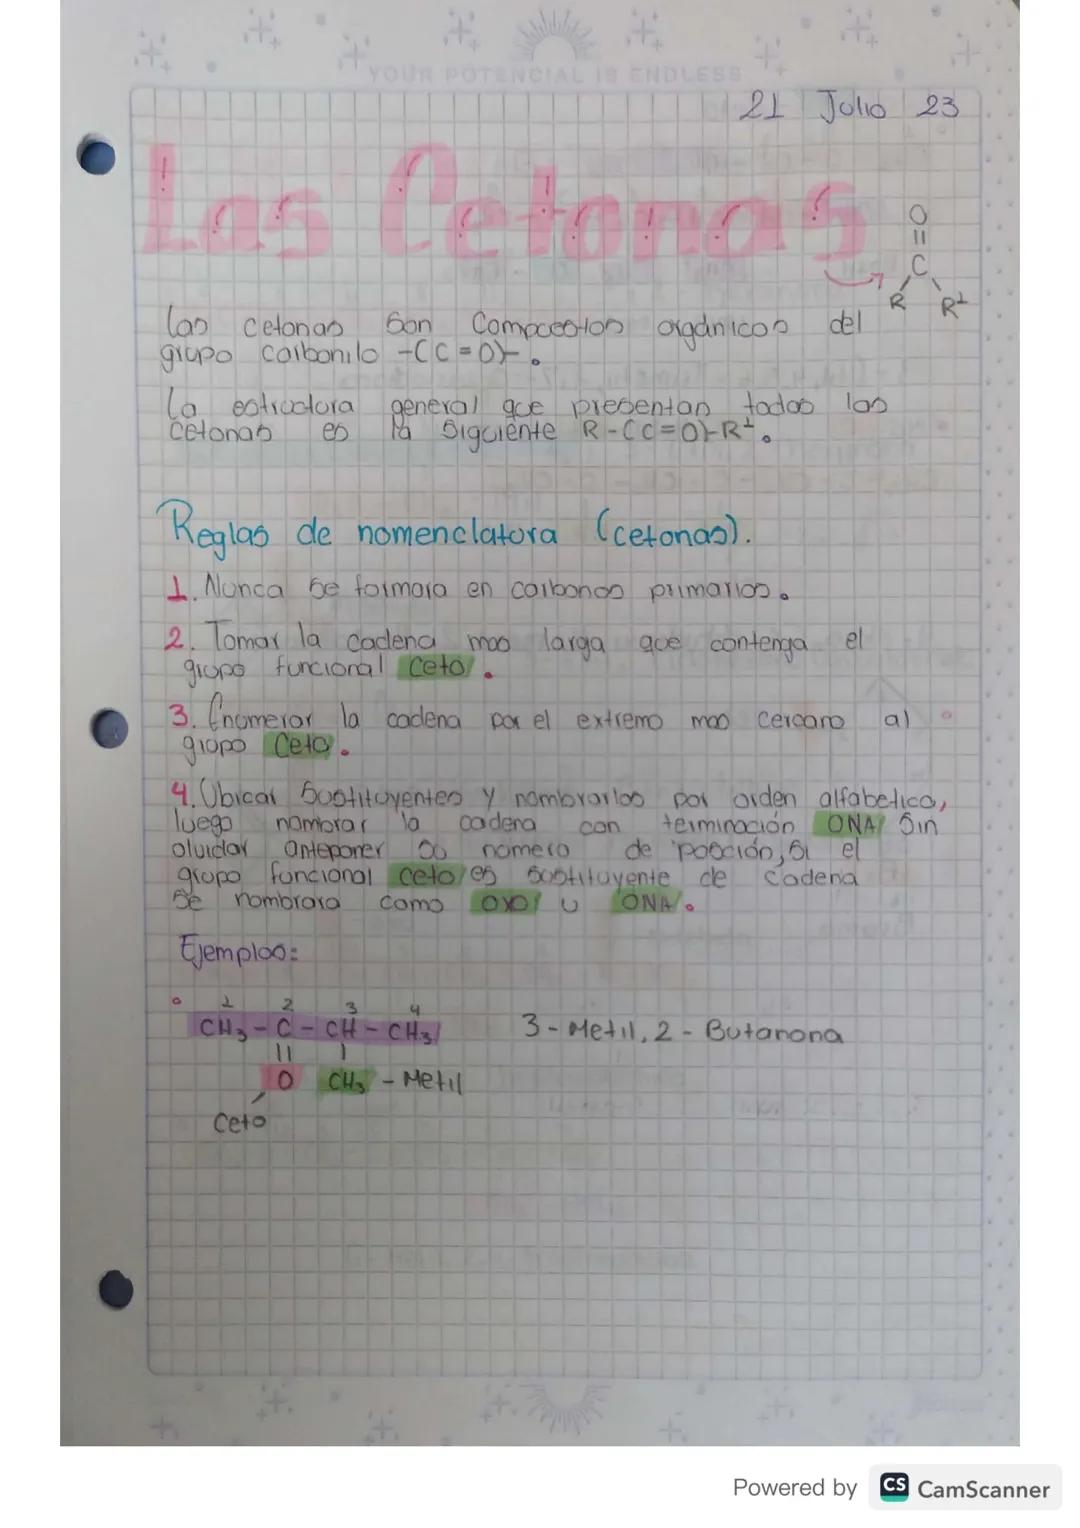 YOUR POTENCIAL IS ENDLESS
21 Julio 23
Las Cetonas
O
||
C
R R¹
Las cetonas son Compuestos orgánicos del
grupo carbonilo -(C=O)-.
La estructura general que presentan todas las
cetonas es la siguiente R-(C=O)-R¹.
Reglas de nomenclatura (cetonas).
1. Nunca se formara en carbonos primarios.
2. Tomar la cadena mas larga que contenga el
grupo funcional ceto.
3. Enumerar la cadena por el extremo mas cercano al
grupo Ceto.
4. Ubicar Sustituyentes y nombrarlos por orden alfabetico,
luego nombrar la cadena con terminación ONA Sin
olvidar anteponer su numero de posición, si el
grupo funcional ceto es sustituyente de cadena
se nombrara como oxo u ONA.
Ejemplos:
1 2 3 4
CH3 - C - CH - CH3 3 - Metil, 2 - Butanona
|| |
O CH3 - Metil
Ceto
Powered by CS CamScanner